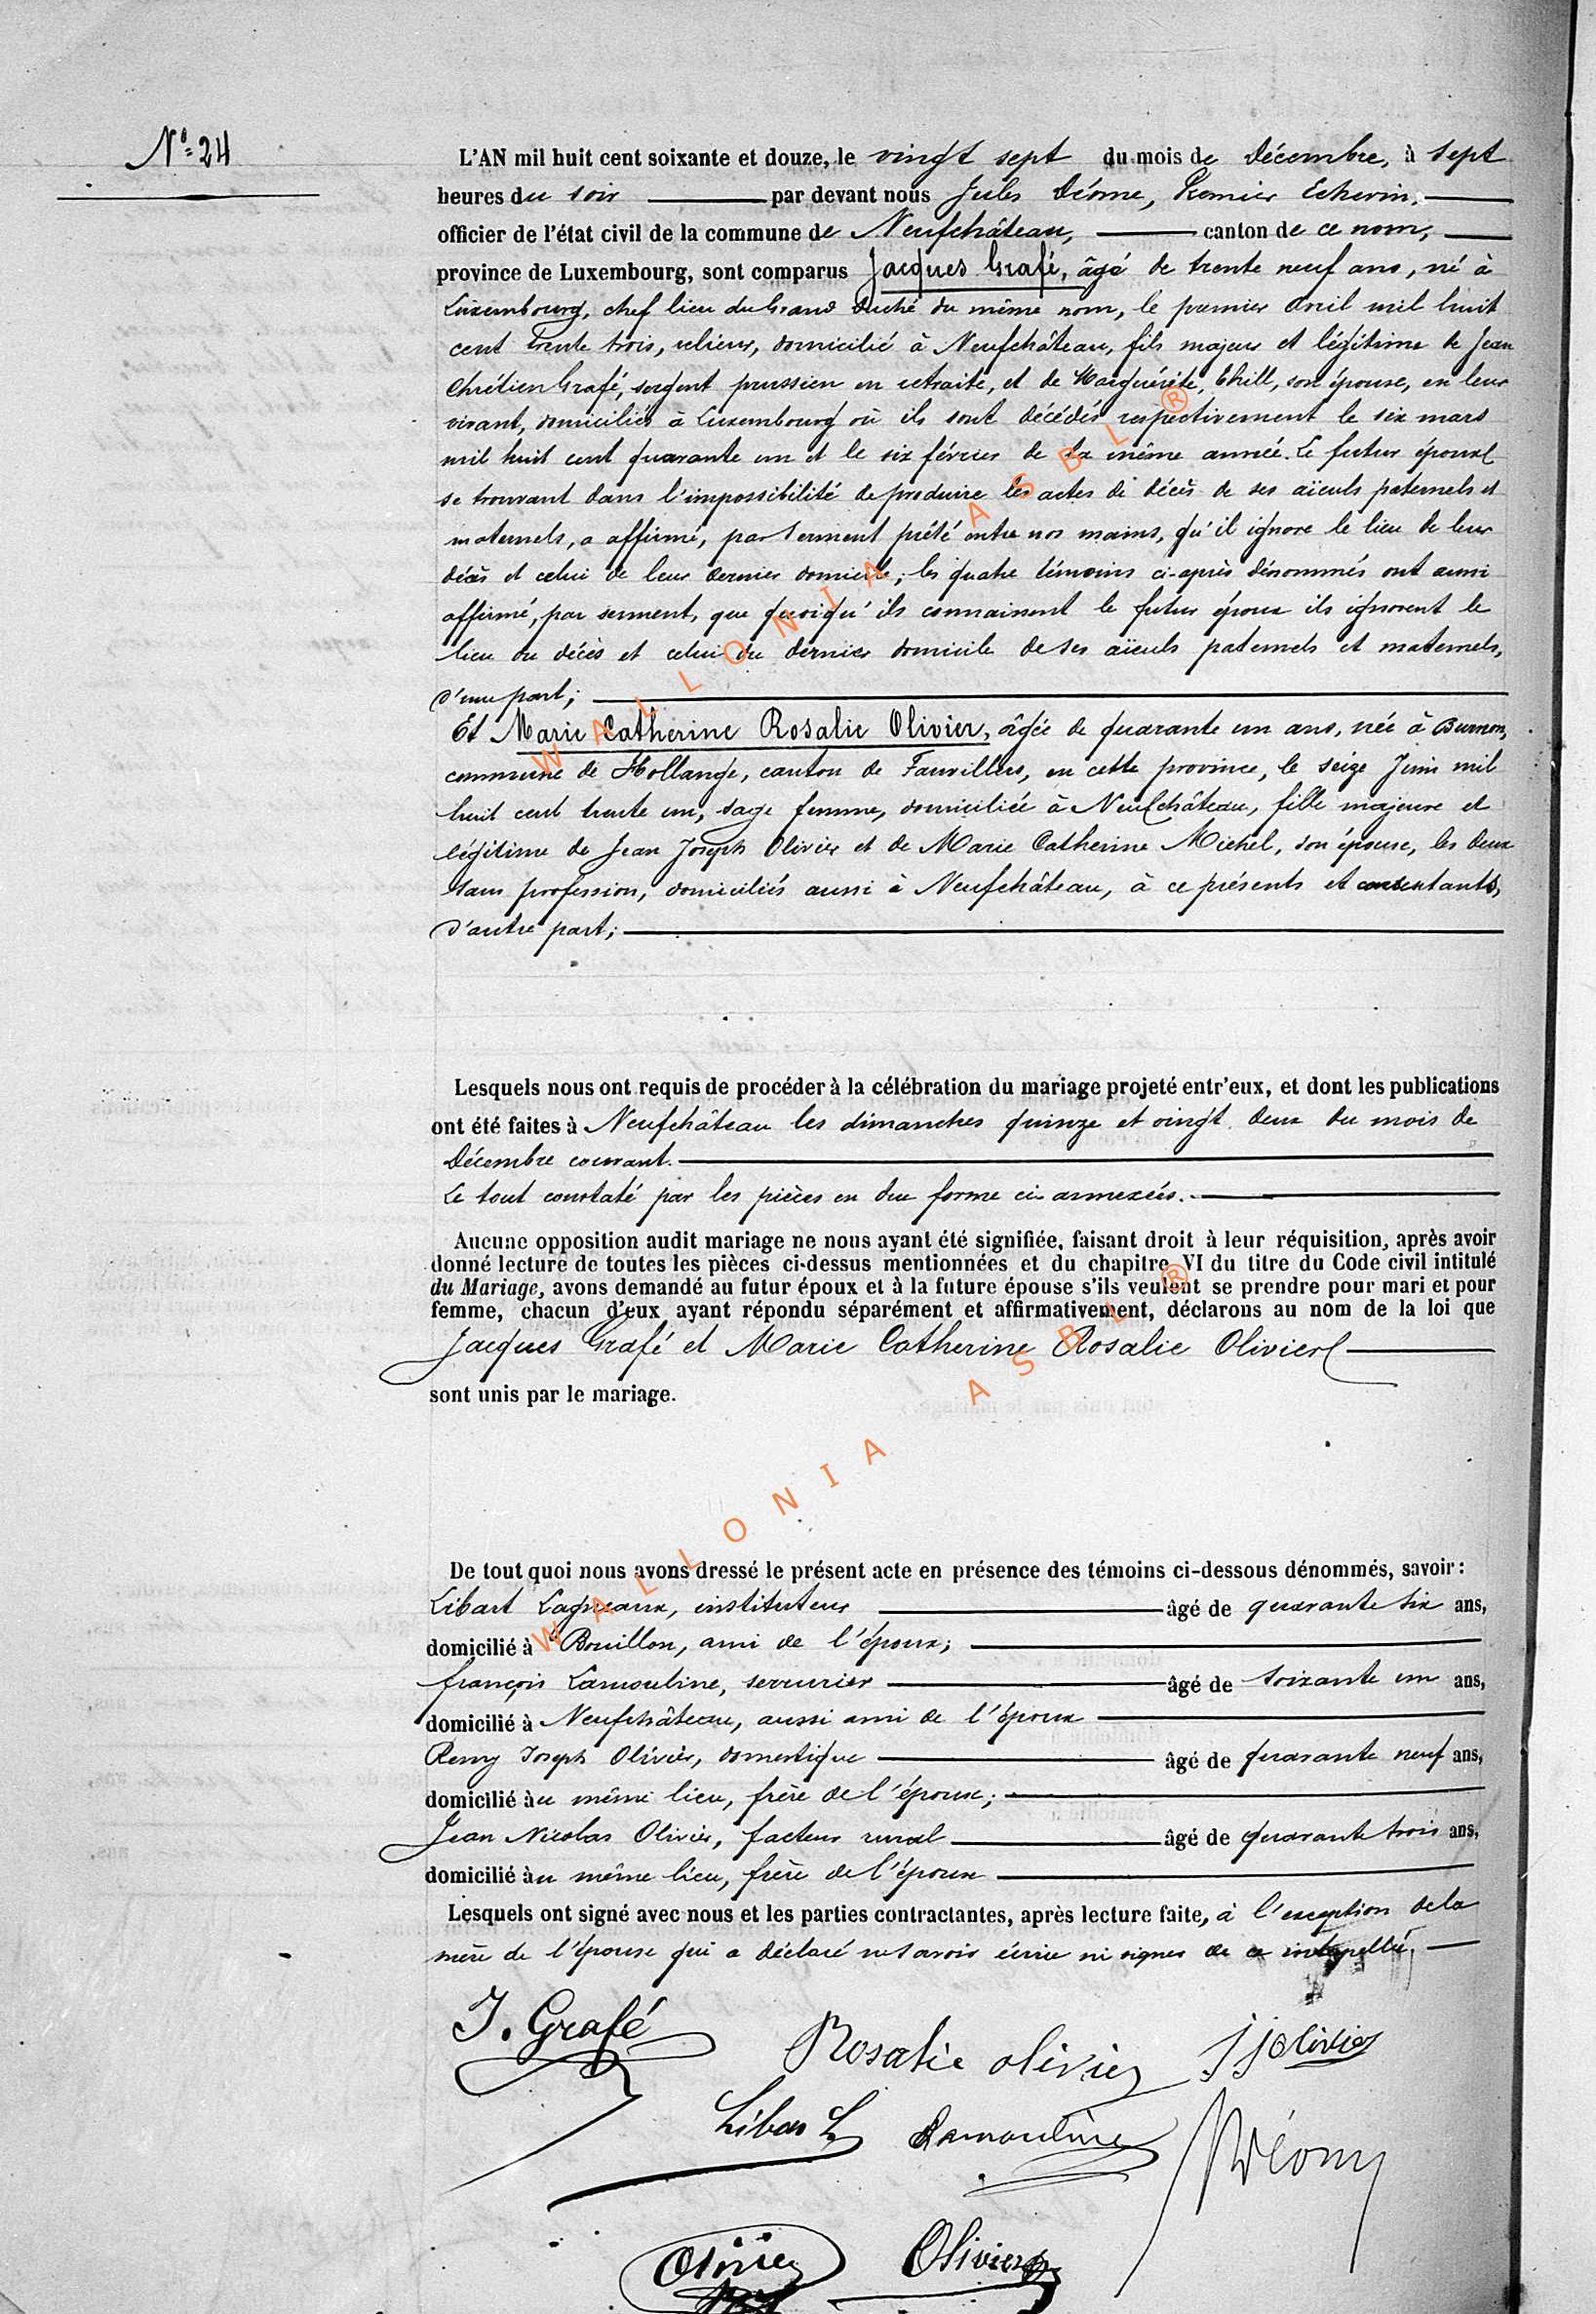 N° 24
L'AN mil huit cent soixante et douze, le vingt sept du mois de Décembre, à sept
heures du soir par devant nous Jules Déome, Premier Echevin,
officier de l'état civil de la commune de Neufchâteau, canton de ce nom,
province de Luxembourg, sont comparus Jacques Grafé, âgé de trente neuf ans, né à
Luxembourg, chef lieu du Grand Duché du même nom, le premier Avril mil huit
cent trente trois, relieur, domicilié à Neufchâteau, fils majeur et légitime de Jean
Chrétien Grafé, sergent prussien en retraite, et de Marguérite, son épouse, en leur
vivant, domiciliés à Luxembourg où ils sont décédés respectivement le six mars
mil huit cent quarante un et le six février de la même année. Le futur époux
se trouvant dans l'impossibilité de produire les actes de décès de ses aïeuls paternels et
maternels, a affirmé, par serment prêté entre nos mains, qu'il ignore le lieu de leur
décès et celui de leur dernier domicile; les quatre témoins ci-après dénommés ont aussi
affirmé, par serment, que quoiqu'ils connaissent le futur époux ils ignorent le
lieu du décès et celui du dernier domicile de ses aïeuls paternels et maternels,
d'une part;
Et Marie Catherine Rosalie Olivier, âgée de quarante un ans, née à Burnon,
commune de Hollange, canton de Fauvillers, en cette province, le seize Juin mil
huit cent trente un, sage femme, domiciliée à Neufchâteau, fille majeure et
légitime de Jean Joseph Olivier et de Marie Catherine Michel, son épouse, les deux
sans profession, domiciliés aussi à Neufchâteau, à ce présents et consentants,
d'autre part;
Lesquels nous ont requis de procéder à la célébration du mariage projeté entr'eux, et dont les publications
ont été faites à Neufchâteau les dimanches quinze et vingt deux du mois de
Décembre courant.
Le tout constaté par les pièces en due forme ci annexées.
Aucune opposition audit mariage ne nous ayant été signifiée, faisant droit à leur réquisition, après avoir
donné lecture de toutes les pièces ci-dessus mentionnées et du chapitre VI du titre du Code civil intitulé
du Mariage, avons demandé au futur époux et à la future épouse s'ils veulent se prendre pour mari et pour
femme, chacun d'eux ayant répondu séparément et affirmativement, déclarons au nom de la loi que
Jacques Grafé et Marie Catherine Rosalie Olivier
sont unis par le mariage.
De tout quoi nous avons dressé le présent acte en présence des témoins ci-dessous dénommés, savoir:
Libart Lagneaux, instituteur âgé de quarante six ans,
domicilié à Bouillon, ami de l'époux;
François Lamouline, serrurier âgé de soixante un ans,
domicilié à Neufchâteau, aussi ami de l'époux
Remy Joseph Olivier, domestique âgé de quarante neuf ans,
domicilié au même lieu, frère de l'épouse;
Jean Nicolas Olivier, facteur rural âgé de quarante trois ans,
domicilié au même lieu, frère de l'épouse
Lesquels ont signé avec nous et les parties contractantes, après lecture faite, à l'exception de la
mère de l'épouse qui a déclaré ne savoir écrire ni signer de ce interpellée.
J. Grafé
Rosalie olivier
JJ olivier
Libar L
Lamouline
JDéom
Olivier
Olivier
WALLONIA ASBL ®
WALLONIA ASBL ®